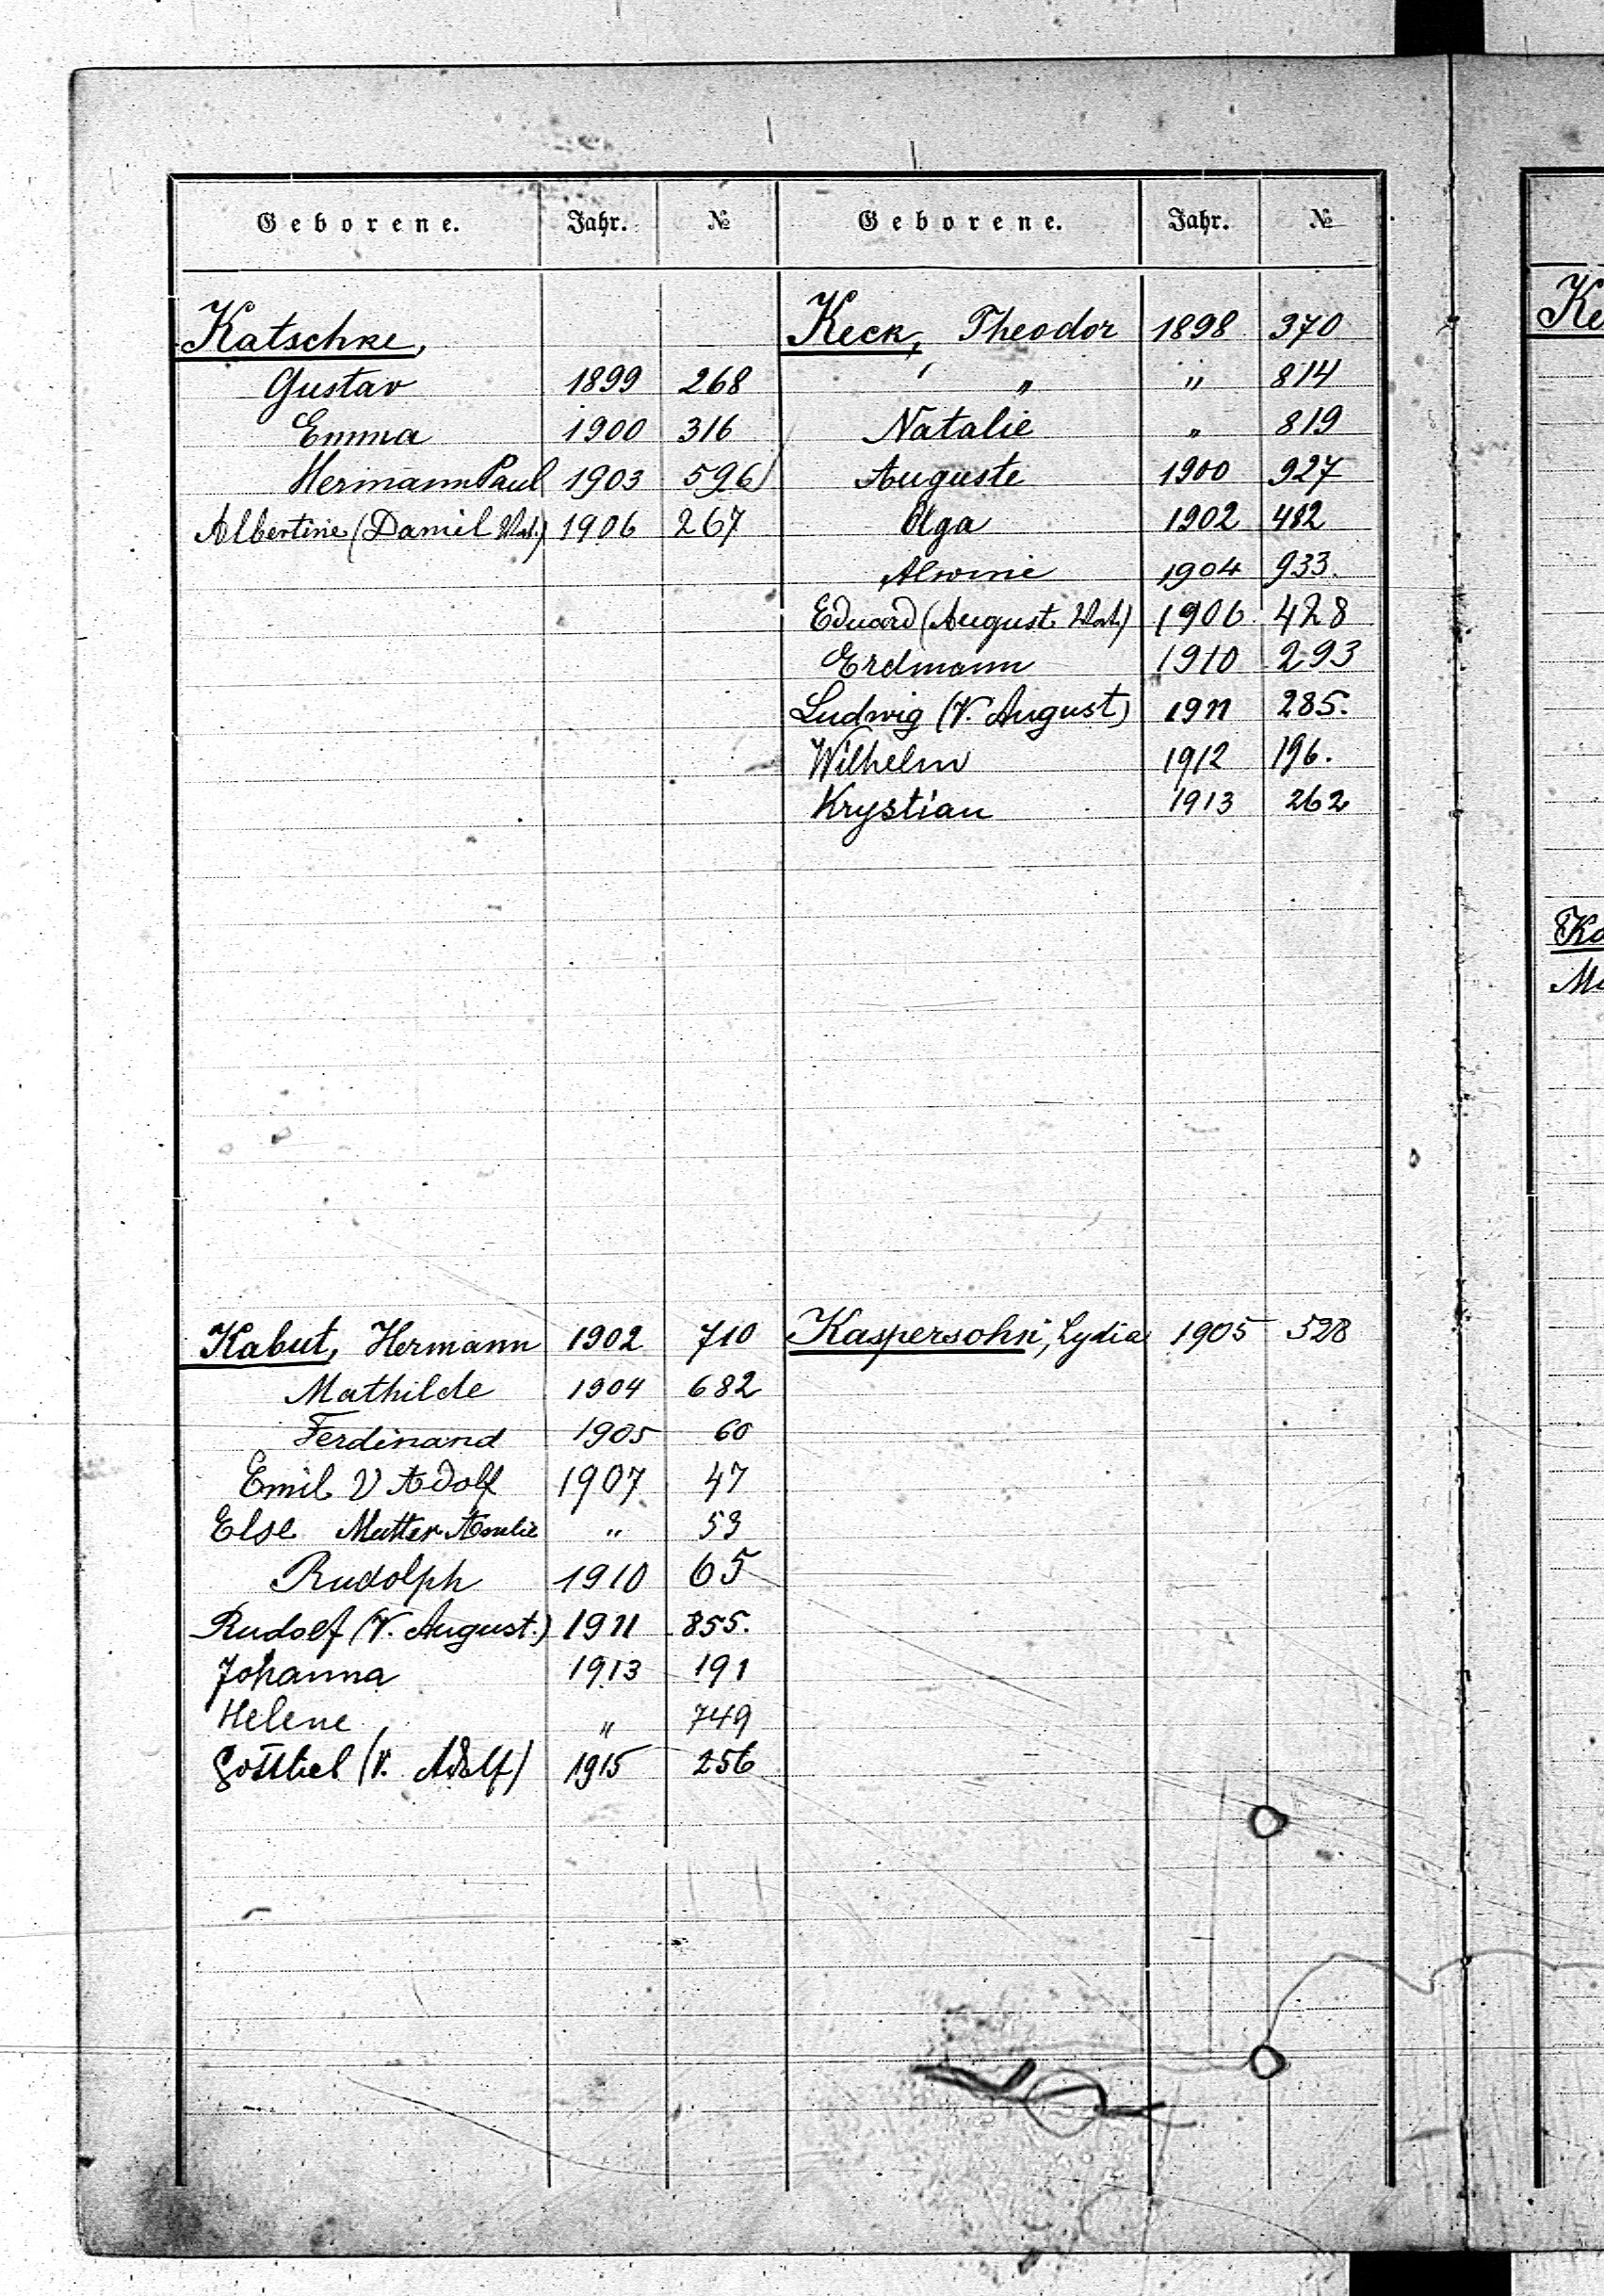 Geborene. Jahr. №
Katschke,
Gustav 1899 268
Emma 1900 316
Hermann Paul 1903 596
Albertine (Daniel Vat.) 1906 267
Kabut, Hermann 1902 710
Mathilde 1904 682
Ferdinand 1905 60
Emil V Adolf 1907 47
Else Mutter Amelie " 53
Rudolph 1910 65
Rudolf (V. August.) 1911 855.
Johanna 1913 191
Helene " 749
Gottlieb (V. Adolf) 1915 256
Geborene. Jahr. №
Keck, Theodor 1898 370
" " 814
Natalie " 819
Auguste 1900 927
Olga 1902 482
Alwine 1904 933.
Eduard (August Vat.) 1906 428
Erdmann 1910 293
Ludwig (V. August) 1911 285.
Wilhelm 1912 196.
Krystian 1913 262
Kaspersohn, Lydia 1905 528
Ke
Ka